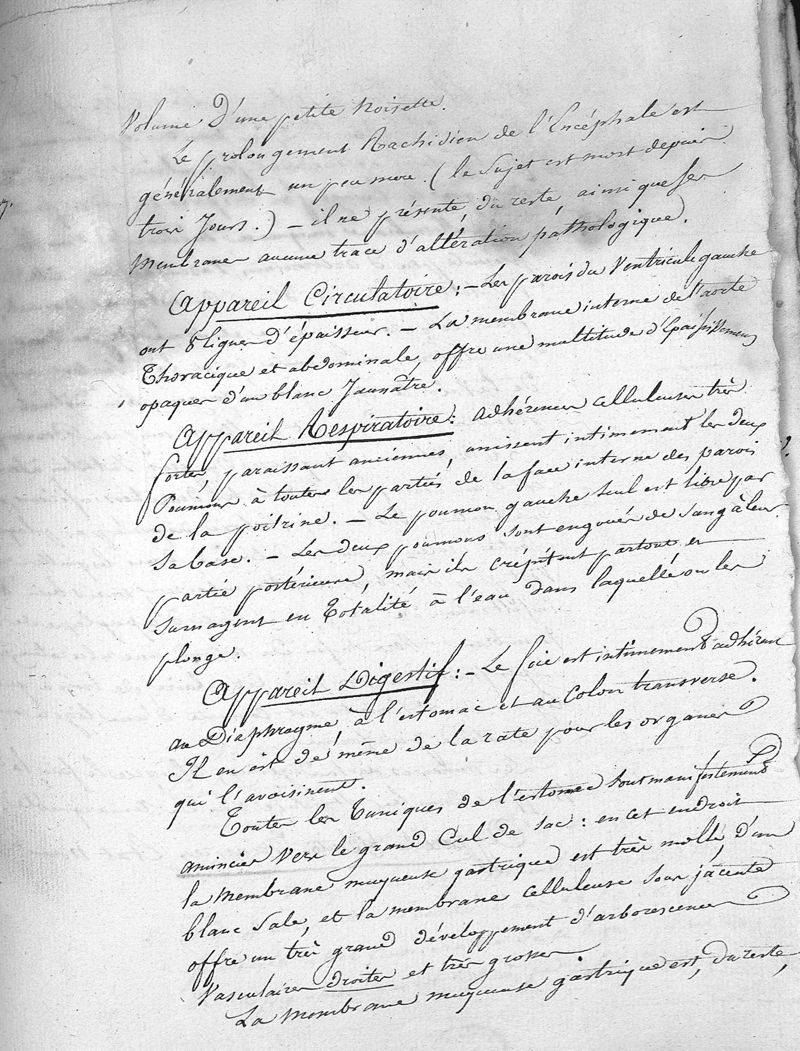 Volume D'une petite Noisette.
Le prolongement Rachidien de l'Encéphale est
généralement un peu mou. (le Sujet est mort depuis
trois Jours.) — il ne présente, du reste, ainsi que ses
Membranes aucune trace d'altération pathologique.
Appareil Circulatoire: — Les parois du Ventricule gauche
ont 8 lignes d'épaisseur. — La membrane interne de l'aorte
Thoracique et abdominale, offre une multitude d'Epaississemens
opaques d'un blanc Jaunâtre.
Appareil Respiratoire: adhérences celluleuses très
fortes, paraissant anciennes, unissent intimement les deux
Poumons à toutes les parties de la face interne des parois
de la poitrine. — Le poumon gauche seul est libre par
sa base. — Les deux poumons sont engoués de sang à leur
partie postérieure, mais ils crépitent partout et
surnagent en Totalité à l'eau dans laquelle on les
plonge.
Appareil Digestif: — Le foie est intimement adhérent
au Diaphragme, à l'estomac et au Colon transverse.
Il en est de même de la rate pour les organes
qui l'avoisinent.
Toutes les Tuniques de l'estomac sont manifestement
amincies vers le grand Cul de sac: en cet endroit
la membrane muqueuse gastrique est très molle, d'un
blanc sale, et la membrane celluleuse sous jacente
offre un très grand développement d'arborescences
Vasculaires droites et très grosses
La Membrane muqueuse gastrique est, du reste,